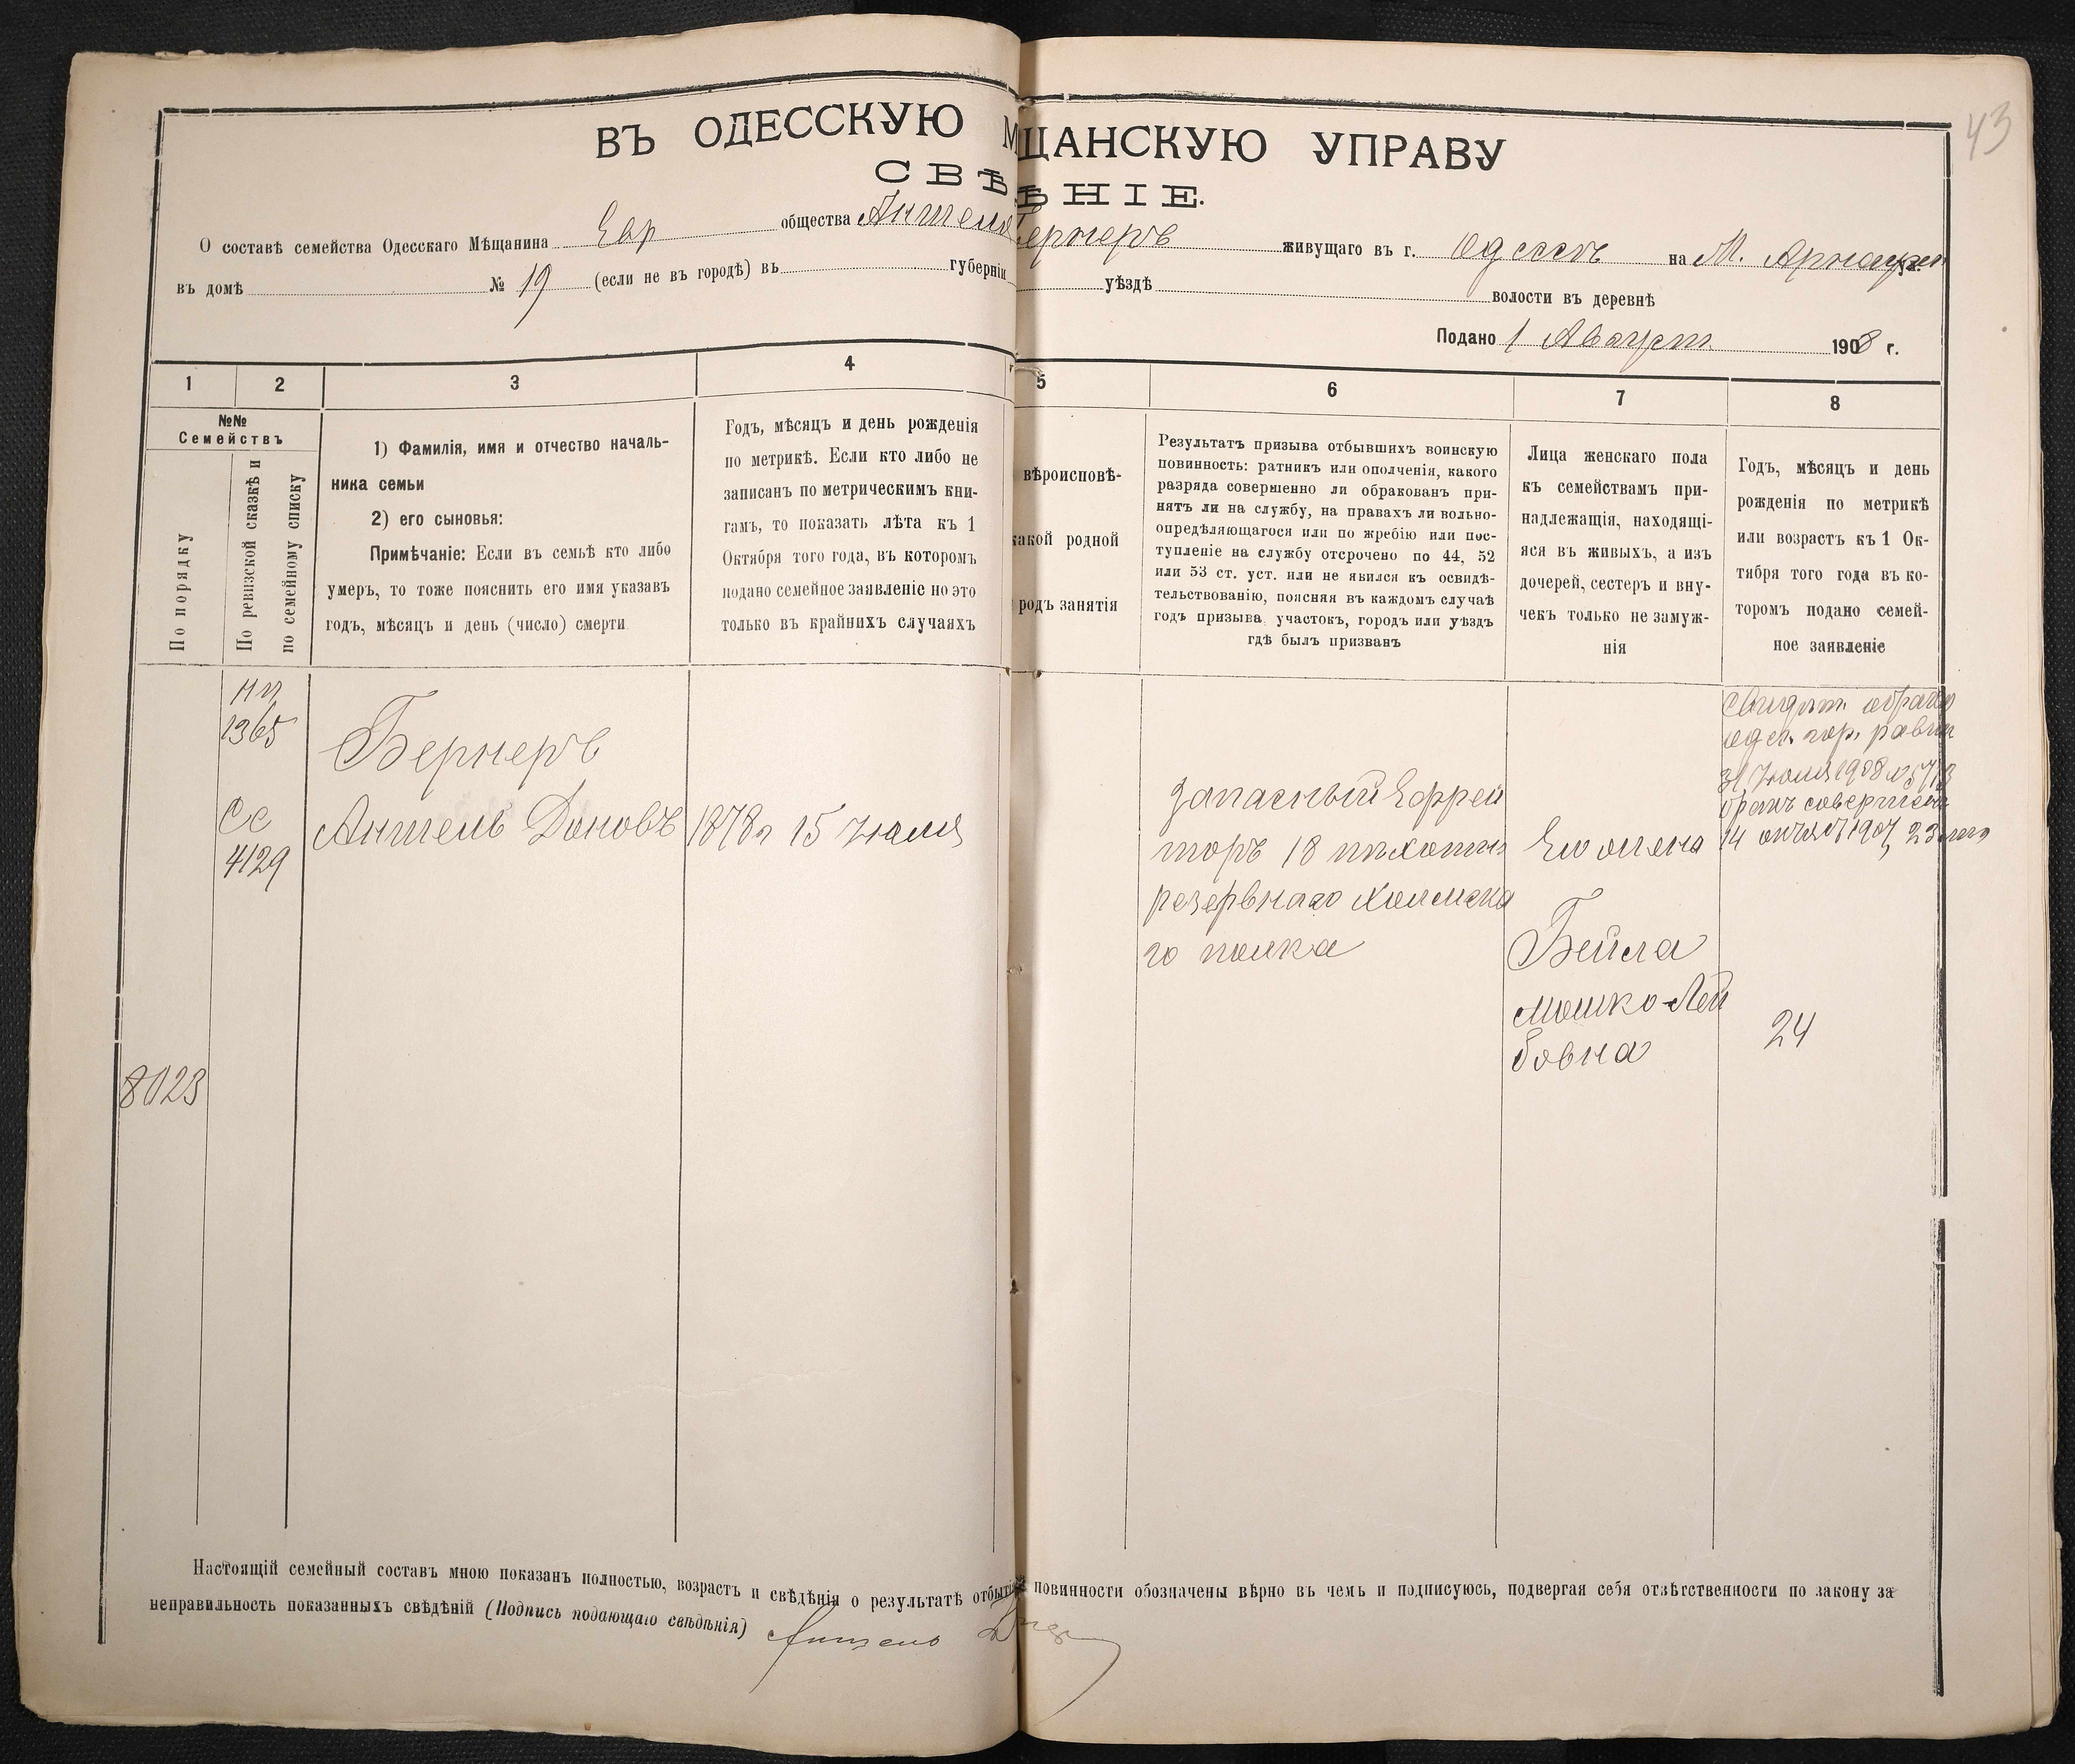 43
ВЪ ОДЕССКУЮ М ЩАНСКУЮ УПРАВУ
СВѢ ѢНІЕ.
О составѣ семейства Одесскаго Мѣщанина Евр общества Аншеля Бернеръ живущаго въ г. Одессѣ на М. Арнаутск
въ домѣ № 19 (если не въ городѣ) въ губерніи уѣздѣ волости въ деревнѣ
Подано 1 Август 1908 г.
1 2 3 4 5 6 7 8
№№
Семействъ
По порядку
По ревизской сказкѣ и
по семейному списку
1) Фамилія, имя и отчество началь-
ника семьи
2) его сыновья:
Примѣчаніе: Если въ семьѣ кто либо
умеръ, то тоже пояснить его имя указавъ
годъ, мѣсяцъ и день (число) смерти
Годъ, мѣсяцъ и день рожденія
по метрикѣ. Если кто либо не
записанъ по метрическимъ кни-
гамъ, то показать лѣта къ 1
Октября того года, въ которомъ
подано семейное заявленіе но это
только въ крайнихъ случаяхъ
вѣроисповѣ-
акой родной
родъ занятія
Результатъ призыва отбывшихъ воинскую
повинность: ратникъ или ополченія, какого
разряда совершенно ли обракованъ при-
нятъ ли на службу, на правахъ ли вольно-
опредѣляющагося или по жребію или пос-
тупленіе на службу отсрочено по 44, 52
или 53 ст. уст. или не явился къ освидѣ-
тельствованію, поясняя въ каждомъ случаѣ
годъ призыва участокъ, городъ или уѣздъ
гдѣ былъ призванъ
Лица женскаго пола
къ семействамъ при-
надлежащія, находящі-
яся въ живыхъ, а изъ
дочерей, сестеръ и вну-
чекъ только не замуж-
нія
Годъ, мѣсяцъ и день
рожденія по метрикѣ
или возрастъ къ 1 Ок-
тября того года въ ко-
торомъ подано семей-
ное заявленіе
1365
Сс
4129
8023
Бернеръ
Аншель Доновъ
1878 г 15 Іюля
Запасный Ефрей
торъ 18 пѣхотн
резервнаго Холмска
го полка
Его жена
Бейла
Мошко-Лей
бовна
Свидѣт. о браке
Одес. гор. равин
31 Іюля 1908
бракъ соверш
14 1907, 23
24
Настоящій семейный составъ мною показанъ полностью, возрастъ и свѣдѣнія о результатѣ отбытія повинности обозначены вѣрно въ чемъ и подписуюсь, подвергая себя отвѣтственности по закону за
неправильность показанныхъ свѣдѣній (Подпись подающаго свѣдѣнія) Аншель